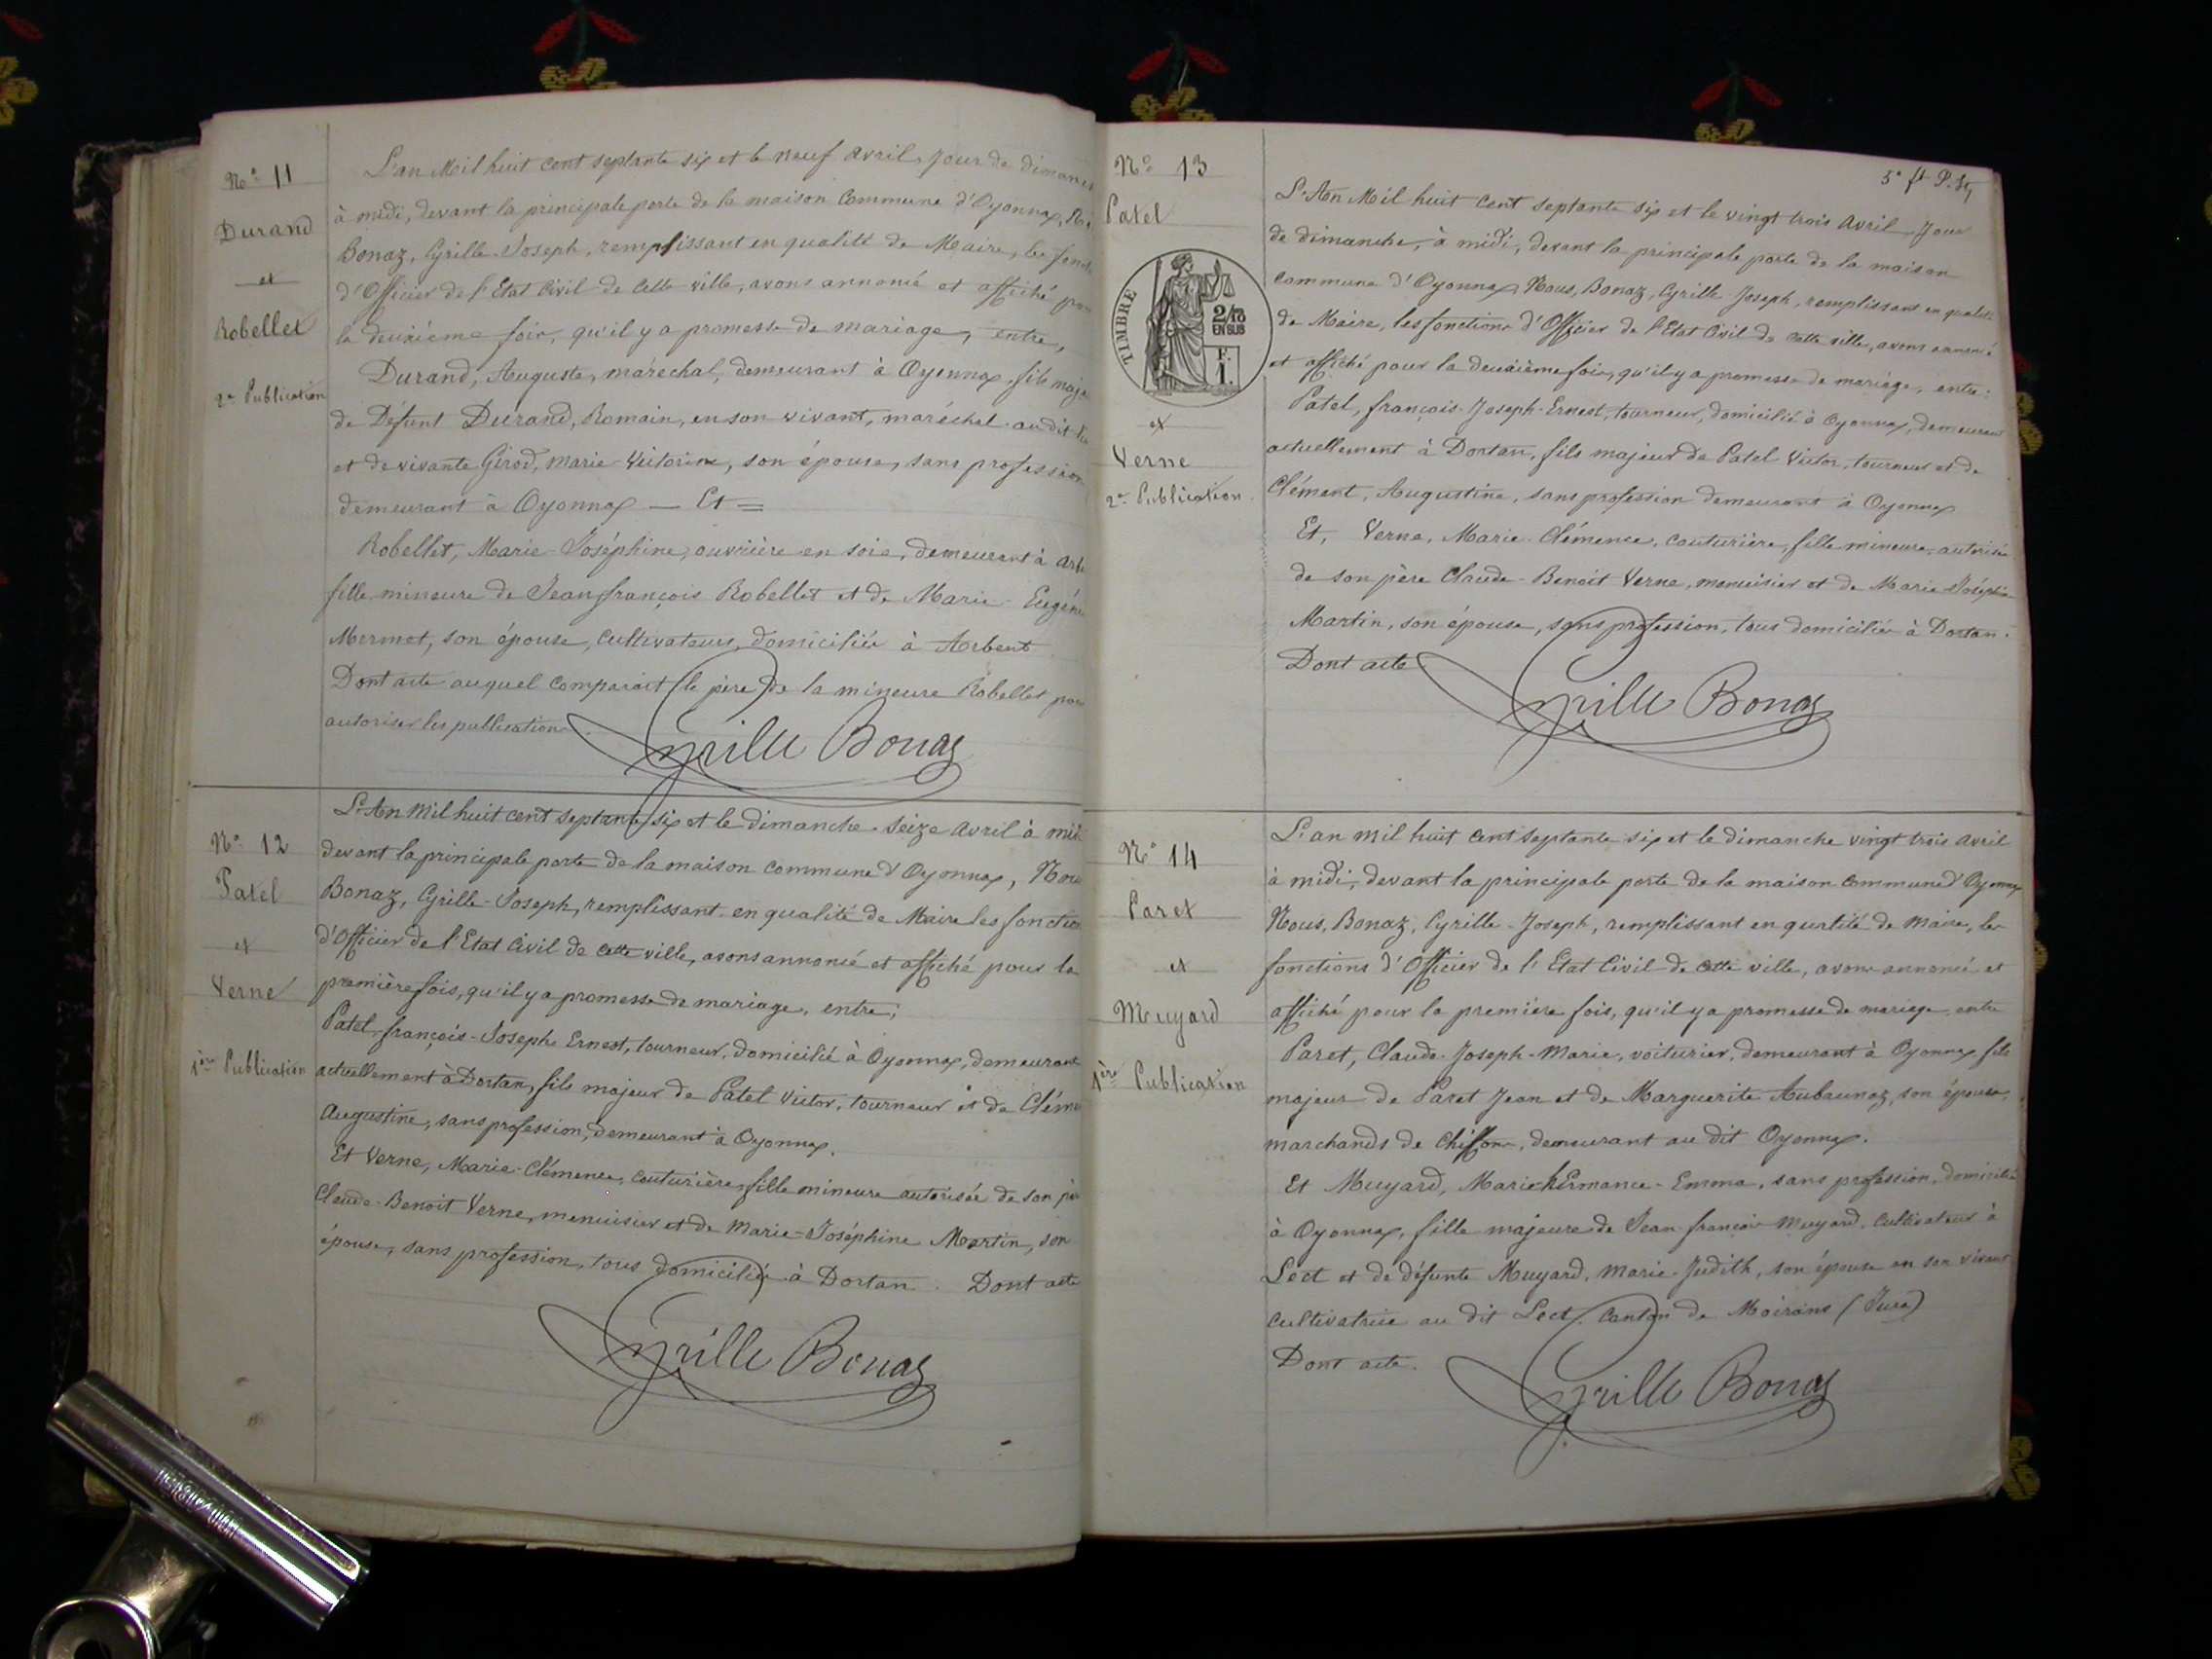 N° 11
Durand
et
Robellet
2e Publication
L'an Mil huit cent septante six et le neuf avril, Jour de dimanc
à midi, devant la principale porte de la maison Commune d'Oyonnax, No
Bonaz, Cyrille-Joseph, remplissant en qualité de Maire, les fonct
d'Officier de l'Etat Civil de cette ville, avons annoncé et affiché pou
la deuxième fois, qu'il y a promesse de mariage, entre,
Durand, Auguste, maréchal, demeurant à Oyonnax, fils maje
de Défunt Durand, Romain, en son vivant, maréchal au dit
et de vivante Girod, Marie-Victorine, son épouse, sans profession
demeurant à Oyonnax — Et =
Robellet, Marie-Joséphine, ouvrière en soie, demeurant à Arb
fille mineure de Jean françois Robellet et de Marie-Eugéni
Mermet, son épouse, cultivateurs, domiciliés à Arbent
Dont acte auquel comparait le père de la mineure Robellet pou
autoriser les publications.
Cyrille Bonaz
N° 12
Patel
et
Verne
1ère Publication
L'An Mil huit cent septante six et le dimanche seize avril à mid
devant la principale porte de la maison commune d'Oyonnax, Nou
Bonaz, Cyrille-Joseph, remplissant en qualité de Maire les fonction
d'Officier de l'Etat Civil de cette ville, avons annoncé et affiché pour la
première fois, qu'il y a promesse de mariage, entre;
Patel, françois-Joseph Ernest, tourneur, domicilié à Oyonnax, demeurant
actuellement à Dortan, fils majeur de Patel Victor, tourneur et de Cléme
Augustine, sans profession, demeurant à Oyonnax.
Et Verne, Marie-Clémence, couturière, fille mineure autorisée de son pè
Claude-Benoit Verne, menuisier et de Marie-Joséphine Martin, son
épouse, sans profession, tous domiciliés à Dortan. Dont acte
Cyrille Bonaz
N° 13
Patel
TIMBRE
2/10
EN SUS
F.
1.
et
Verne
2e Publication.
5e ft
L'An Mil huit cent septante six et le vingt trois avril Jour
de dimanche, à midi, devant la principale porte de la maison
commune d'Oyonnax, Nous, Bonaz, Cyrille Joseph, remplissant en qualité
de Maire, les fonctions d'Officier de l'Etat Civil de cette ville, avons annoncé
et affiché pour la deuxième fois, qu'il y a promesse de mariage, entre:
Patel, françois-Joseph-Ernest, tourneur, domicilié à Oyonnax, demeurant
actuellement à Dortan, fils majeur de Patel Victor, tourneur et de
Clément, Augustine, sans profession demeurant à Oyonnax
Et, Verne, Marie-Clémence, couturière, fille mineure autorisée
de son père Claude-Benoit Verne, menuisier et de Marie Joséphine
Martin, son épouse, sans profession, tous domiciliés à Dortan.
Dont acte
Cyrille Bonaz
N° 14
Paret
et
Muyard
1ère Publication
L'an mil huit cent septante six et le dimanche vingt trois avril
à midi, devant la principale porte de la maison commune d'Oyonnax
Nous, Bonaz, Cyrille-Joseph, remplissant en qualité de Maire, les
fonctions d'Officier de l'Etat Civil de cette ville, avons annoncé et
affiché pour la première fois, qu'il y a promesse de mariage entre
Paret, Claude-Joseph-Marie, voiturier, demeurant à Oyonnax fils
majeur de Paret Jean et de Marguerite Aubaunaz, son épouse,
marchands de Chiffons, demeurant au dit Oyonnax.
Et Muyard, Marie hErmance-Emma, sans profession, domiciliée
à Oyonnax, fille majeure de Jean-françois Muyard, Cultivateur à
Lect et de défunte Muyard, Marie-Judith, son épouse en son vivant
cultivatrice au dit Lect, Canton de Moirans (Jura)
Dont acte.
Cyrille Bonaz